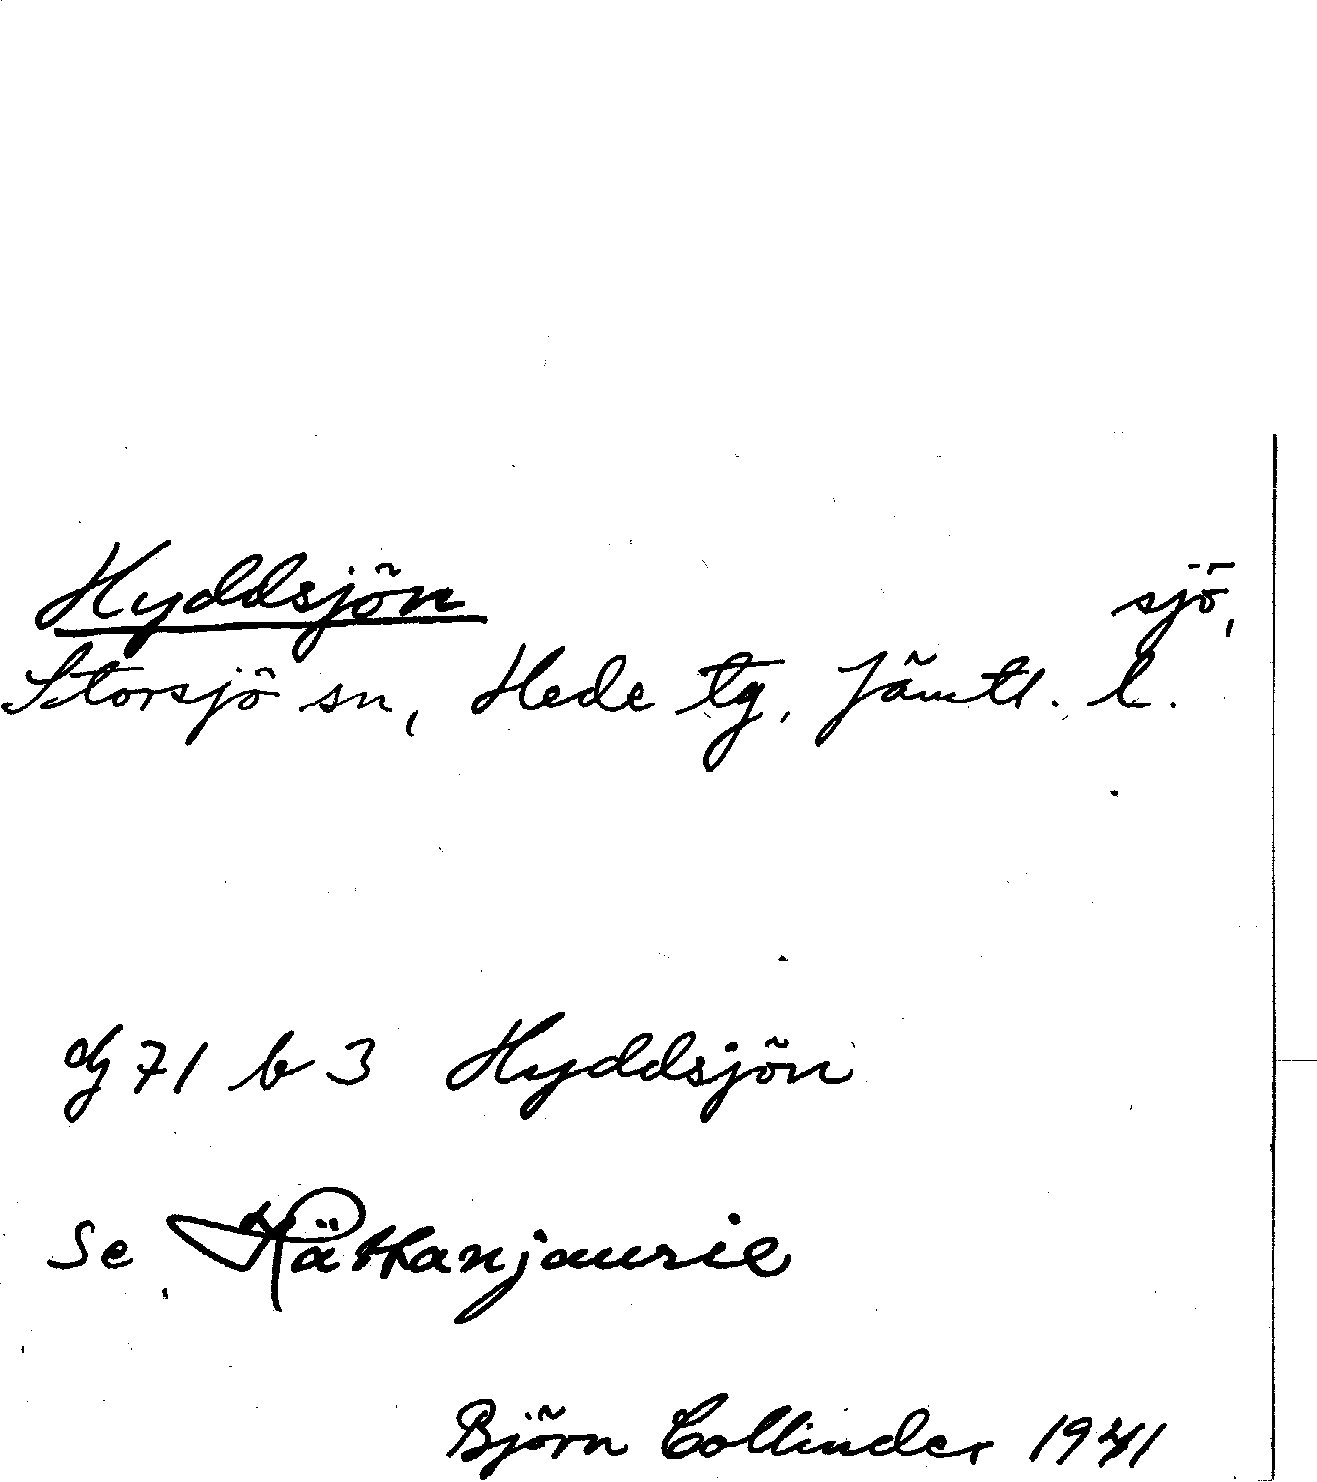 Hyddsjön sjö,
Storsjö sn, Hede tg, Jämtl. l.
dg 71 b 3 Hyddsjön
Se
Björn Collinder 1941